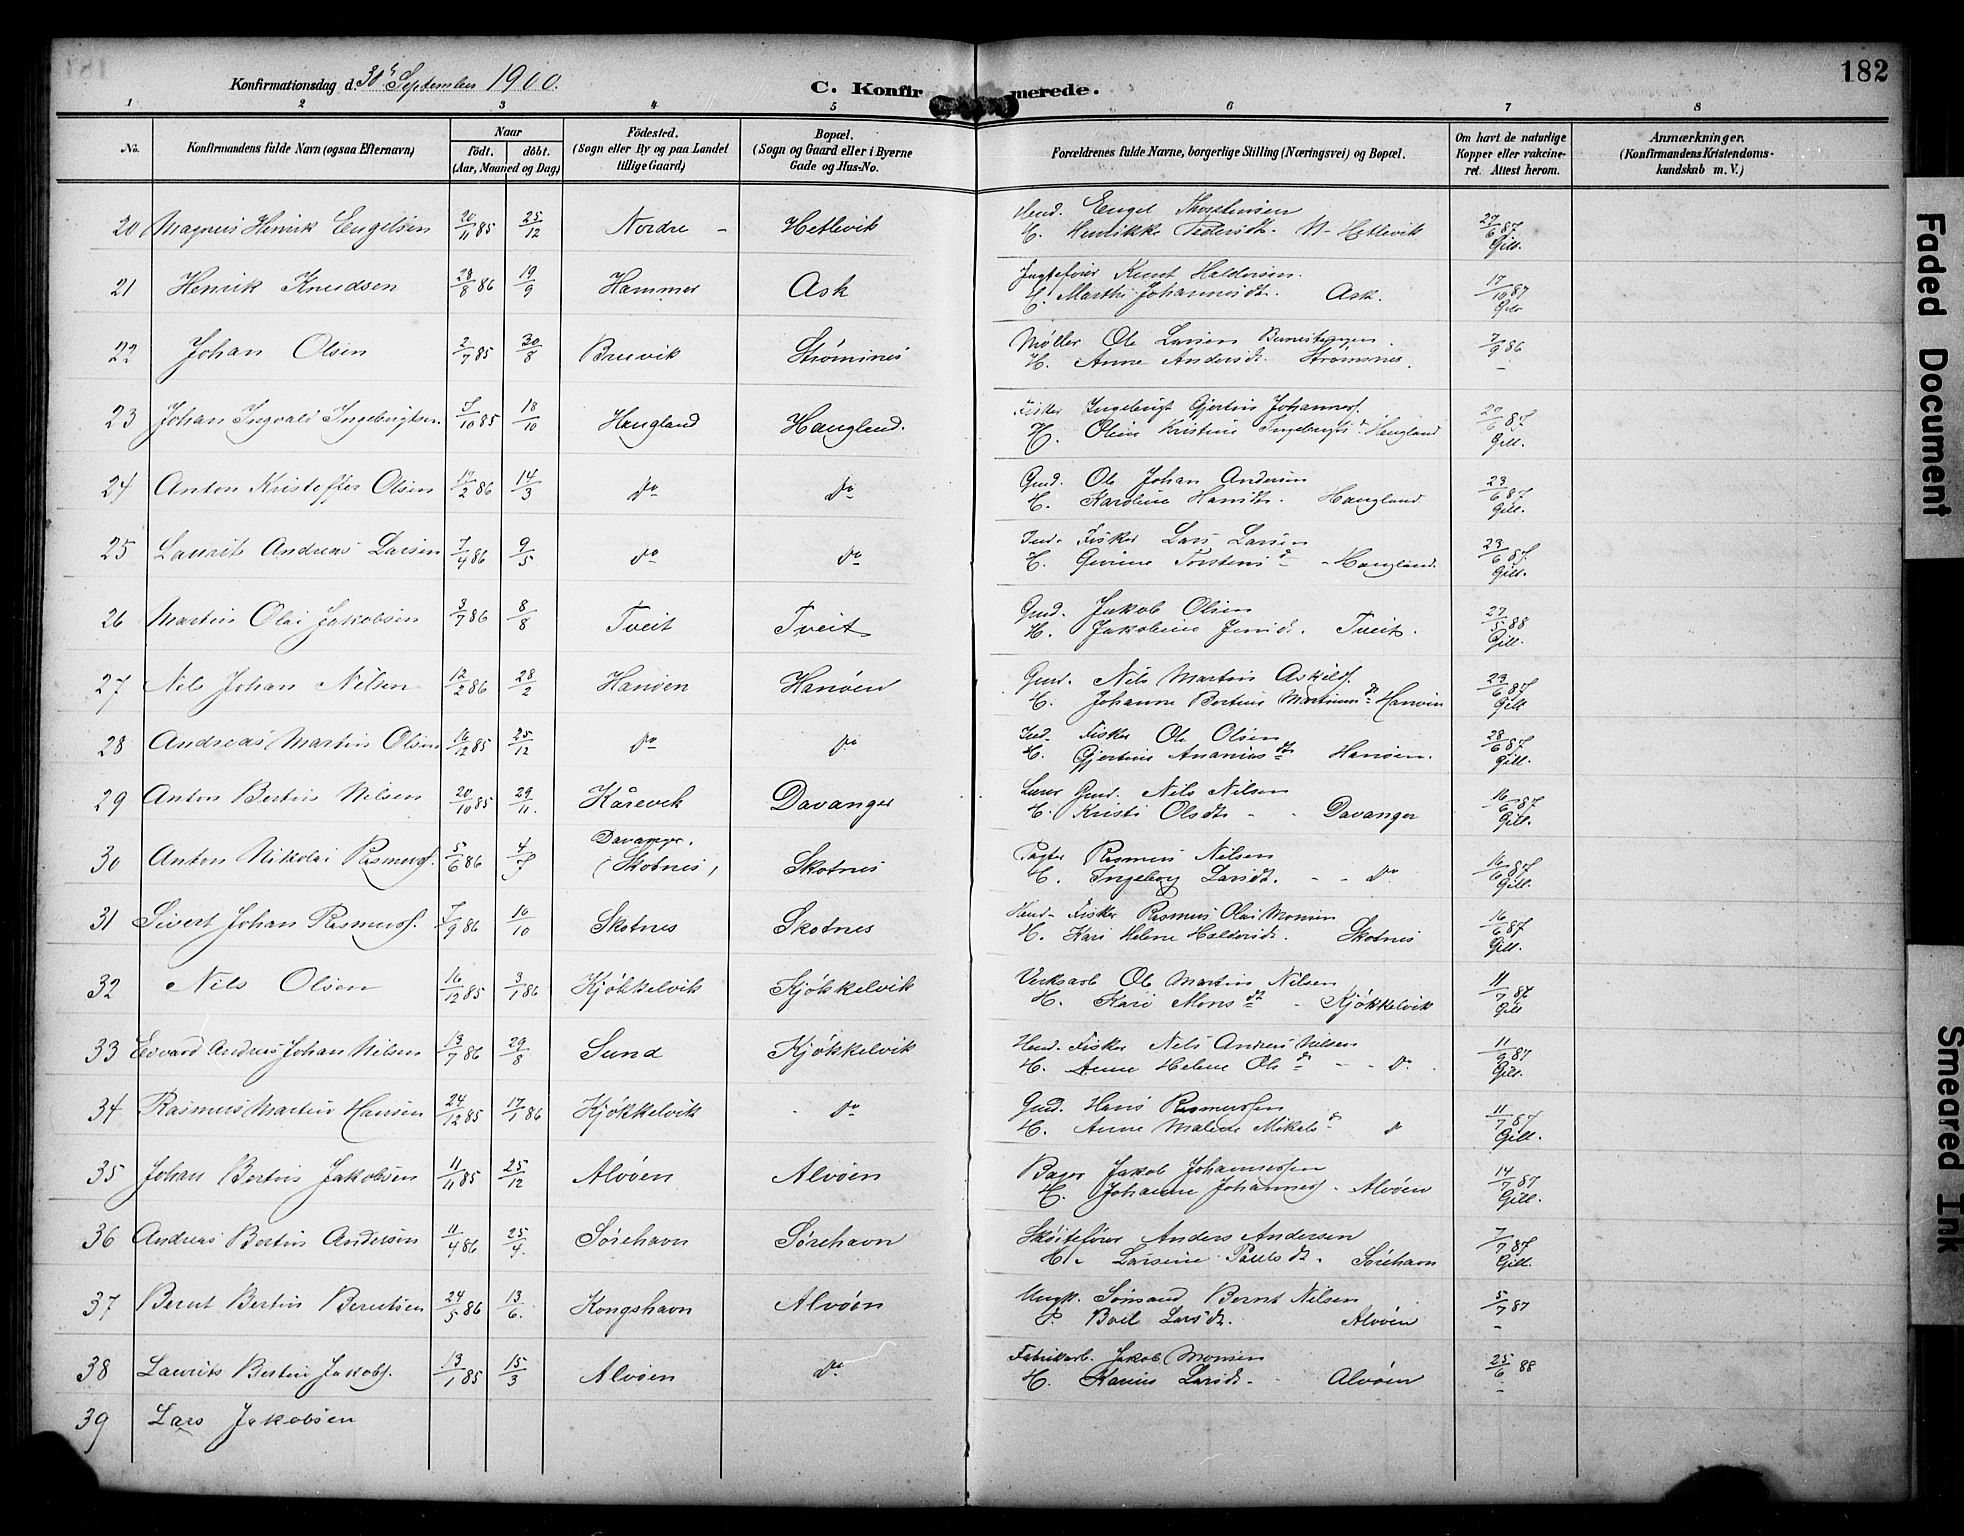 182
Konfirmationsdag d. 30 September 1900.
C. Konfirmerede.
1 2 3 4 5 6 7 8
No.
Konfirmandens fulde Navn (ogsaa Efternavn)
Naar
födt. döbt.
(Aar, Maaned og Dag)
Födested.
(Sogn eller By og paa Landet
tillige Gaard)
Bopæl.
(Sogn og Gaard eller i Byerne
Gade og Hus-No.
Forældrenes fulde Navne, borgerlige Stilling (Næringsvei) og Bopæl.
Om havt de naturlige
Kopper eller vakcine-
ret. Attest herom.
Anmærkninger.
(Konfirmandens Kristendoms-
kundskab m. V.)
20 Magnus Henrik Engelsen 20/11 85 25/12 Nordre - Hetlevik Engel Thorstensen 27/6 87
H. Henrikke N- Hetlevik Gill.
21 Henrik Knudsen 28/8 86 19/9 Hammer Ask Jagtefører Knut Haldorsen. 17/10 87
H. Marthe Johannesdt. Ask.
22 Johan Olsen 2/7 85 30/8 Bruvik Strømsnes Møller Ole Larsen 7/9 86
H. Anne Andersdt. Strømsnes. -
23 Johan Ingvald Ingebrigtsen 7/10 85 18/10 Haugland Haugland. Fisker Ingebrigt Gjertin Johannes. 20/6 87
H. Oline Kristine Ingebrigts d Haugland Gill.
24 Anton Kristoffer Olsen 12/2 86 14/3 do do Gmd. Ole Johan Andersen 23/6 87
H. Karoline Hansdt. Haugland Gill.
25 Laurits Andreas Larsen 7/4 86 9/5 do do Fisker Lars Larsen 23/6 87
H. Torstens d - Haugland. Gill.
26 Martin Olai Jakobsen 3/7 86 8/8 Tveit Tveit Gmd. Jakob Olsen 27/5 88
H. Jakobine Jensd. Tveit. Gill.
27 Nils Johan Nilsen 12/2 86 28/2 Hanøen Hanøen Gmd. Nils Martin Askils. 23/6 87
H. Johanne Bertine Martinus dt Hanøen Gill
28 Andreas Martin Olsen 16/12 85 25/12 do do Fisker Ole Olsen 28/6 87
H. Gjertine Ananias dt Hanøen. Gill.
29 Anton Bertin Nilsen 20/10 85 29/11. Kårevik Davanger Lærer Gmd. Nils Nilsen 16/6 87
H. Kristi Olsdt - - Davanger Gill.
30 Anton Nikolai Rasmuss. 5/6 86 4/7 Davanger. (Skotnes) Skotnes Rasmus Nilsen 16/6 87
H. Ingeborg Larsdt. - - do Gill.
31 Sivert Johan Rasmuss. 7/9 86 10/10 Skotnes Skotnes Fisker Rasmus Olai Monsen 16/6 87
H. Kari Helene Haldorsdt. Skotnes Gill.
32 Nils Olsen 16/12 85 3/1 86 Kjøkkelvik Kjøkkelvik Verksarb Ole Martin Nilsen 11/7 87
H. Kari Mons dt - Kjøkkelvik Gill
33 Edvard Andreas Johan Nilsen 13/7 86 29/8 Sund Kjøkkelvik Fisker Nils Andreas Nilsen 11/9 87
H. Anne Helene Ols d - - do. Gill.
34 Rasmus Martin Hansen 24/12 85 17/1 86 Kjøkkelvik - do Gmd. Hans Rasmussen 11/7 87
H. Anne Malene Mikels d do Gill.
35 Johan Bertin Jakobsen 11/11 85 25/12 Alvøen Alvøen Bager Jakob Johannessen 14/7 87
H. Johanne Johannes - Alvøen Gill.
36 Andreas Bertin Andersen 11/4 86 25/4. Sørehavn Sørehavn Skøitefører Anders Andersen 7/7 87
H. Larsine Pauls dt. Sørehavn Gill.
37 Bernt Bertin Berntsen 24/5 86 13/6. Kongshavn Alvøen Ungk. Sømand Bernt Nilsen 5/7 87
P. Boel Larsdt. Alvøen -
38 Laurits Bertin Jakobs. 13/1 85 15/3 Alvøen do Fabrikarb. Jakob Monsen 25/6 88
H. Larsdt. - Alvøen -
39 Lars Jakobsen
Faded Document
Smeared Ink